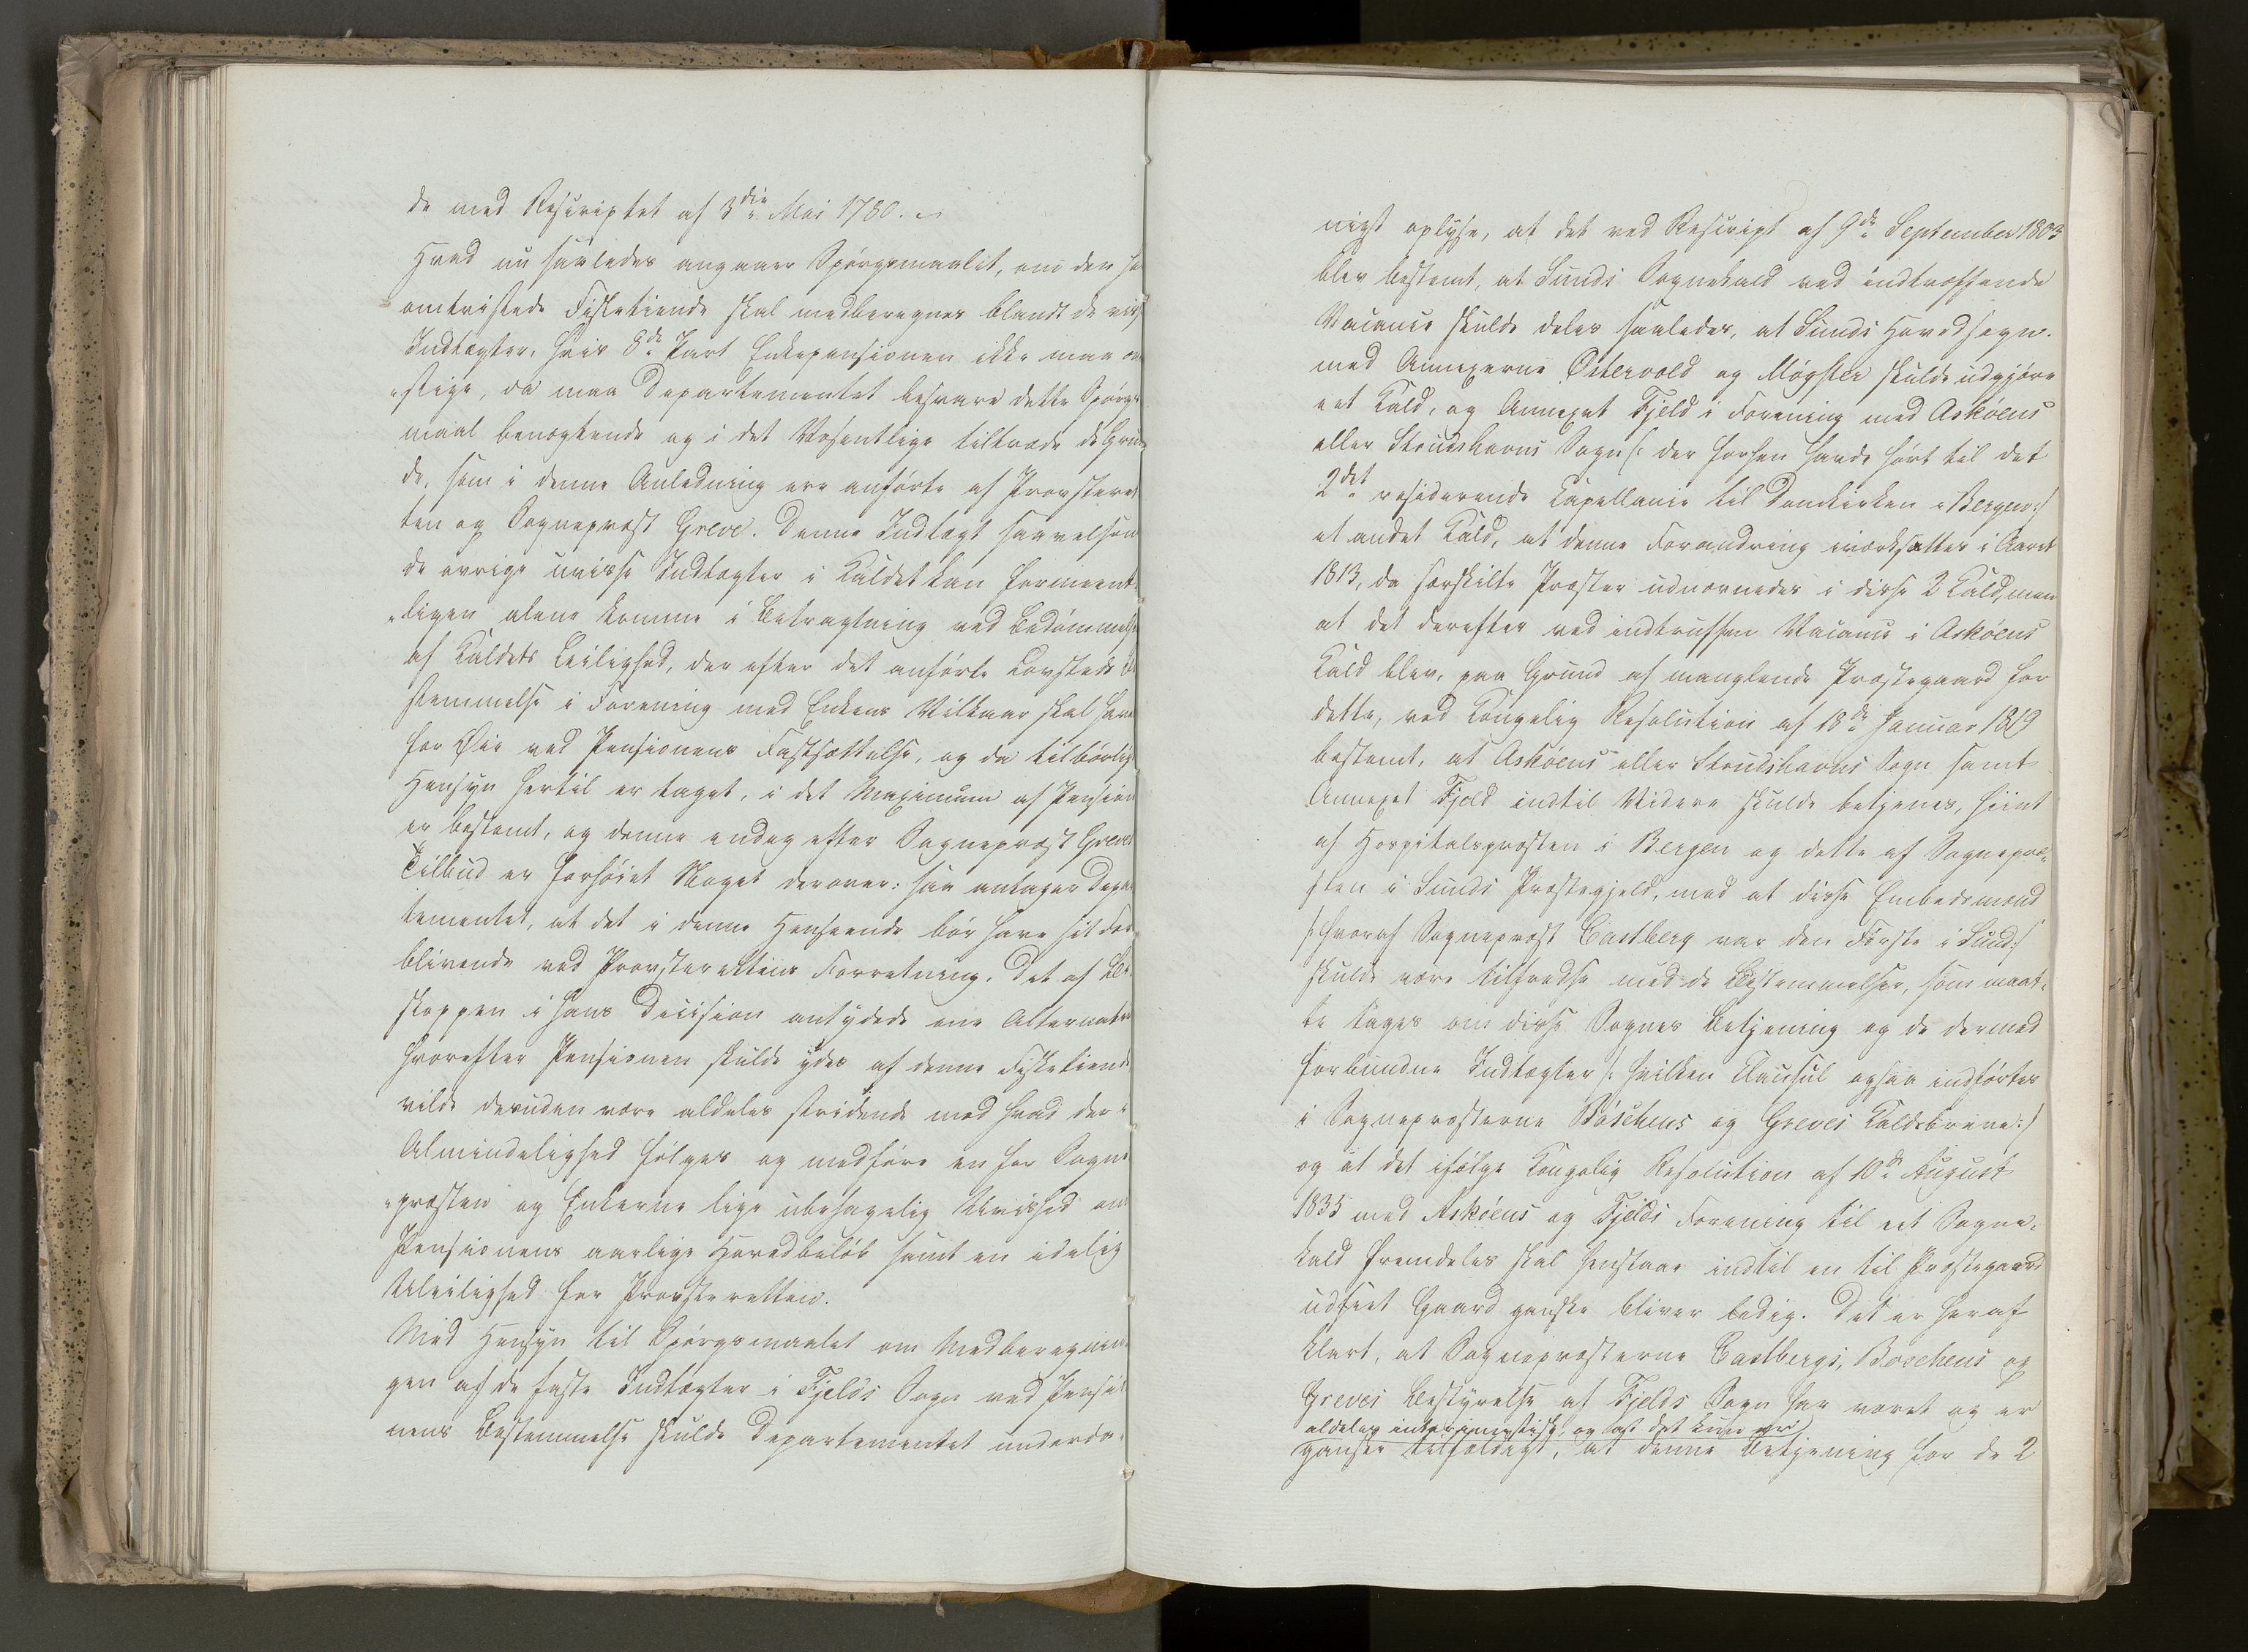 de med Rescriptet af 3die Mai 1780. –
Hvad nu saaledes angaaer Spørgsmaalet, om den saa
omtvistede Fisketiende skal medberegnes blandt de visse
Indtægter, hvis 8de Part Enkepensionen ikke maa over
„stige, da maa Departementet besvare dette Spørgs
maal benægtende og i det Væsentlige tiltræde de Grun
de, som i denne Anledning ere anførte af Provsteret
ten og Sognepræst Greve. Denne Indtægt saavelsom
de øvrige uvisse Indtægter i Kaldet kan formeent
„ligen alene komme i Betragtning ved Bedømmelse
af Kaldets Leilighed, der efter det anførte Lovsteds Be
stemmelse i Forening med Enkens Vilkaar skal haves
for Øie ved Pensionens Fastsættelse, og da tilbørligt
Hensyn hertil er taget, i det Maximum af Pension
er bestemt, og denne endog efter Sognepræst Greves
Tilbud er forhøiet Noget derover: saa antager Depar
tementet, at det i denne Henseende bør have sit For
blivende ved Provsterettens Forretning. Det af Bi
skoppen i hans Decision antydede ene Alternativ
hvorefter Pensionen skulde ydes af denne Fisketiende
vilde desuden være aldeles stridende mod hvad der i
Almindelighed følges og medføre en for Sogne
„præsten og Enkerne lige ubehagelig Uvished om
Pensionens aarlige Hovedbeløb samt en idelig
Uleilighed for Provsteretten.
Med Hensyn til Spørgsmaalet om Medberegnin
gen af de faste Indtægter i Fjelds Sogn ved Pensio
nens Bestemmelse skulde Departementet underda-
nigst oplyse, at det ved Rescript af 9de September 1803
blev bestemt, at Sunds Sognekald ved indtræffende
Vacance skulde deles saaledes, at Sunds Hovedsogn
med Annexerne Østervold og Møgster skulde udgjøre
eet Kald, og Annexet Fjeld i Forening med Askøens
eller Strudshavns Sogn /: der forhen havde hørt til det
2det residerende Capellanie til Domkirken i Bergen :/
et andet Kald, at denne Forandring iværksattes i Aaret
1813, da særskilte Præster udnævnedes i disse 2 Kald, men
at det derefter ved indtruffen Vacance i Askøens
Kald blev, paa Grund af manglende Præstegaard for
dette, ved Kongelig Resolution af 18de Januar 1819
bestemt, at Askøens eller Strudshavns Sogn samt
Annexet Fjeld indtil Videre skulde betjenes, hiint
af Hospitalspræsten i Bergen og dette af Sognepræ-
sten i Sunds Præstegjeld, mod at disse Embedsmænd
/: hvoraf Sognepræst Castberg var den Første i Sund :/
skulde være tilfredse med de Bestemmelser, som maat-
te tages om disse Sognes Betjening og de dermed
forbundne Indtægter /: hvilken Clausul ogsaa indførtes
i Sognepræsterne Bøschens og Greves Kaldsbreve :/
og at det ifølge Kongelig Resolution af 10de August
1835 med Askøens og Fjelds Forening til eet Sogne-
kald fremdeles skal henstaae indtil en til Præstegaard
udseet Gaard ganske bliver ledig. Det er heraf
klart, at Sognepræsterne Castbergs, Bøschens og
Greves Bestyrelse af Fjelds Sogn har været og er
aldeles interimistisk, og at det kun er
ganske tilfældigt, at denne Betjening for de 2